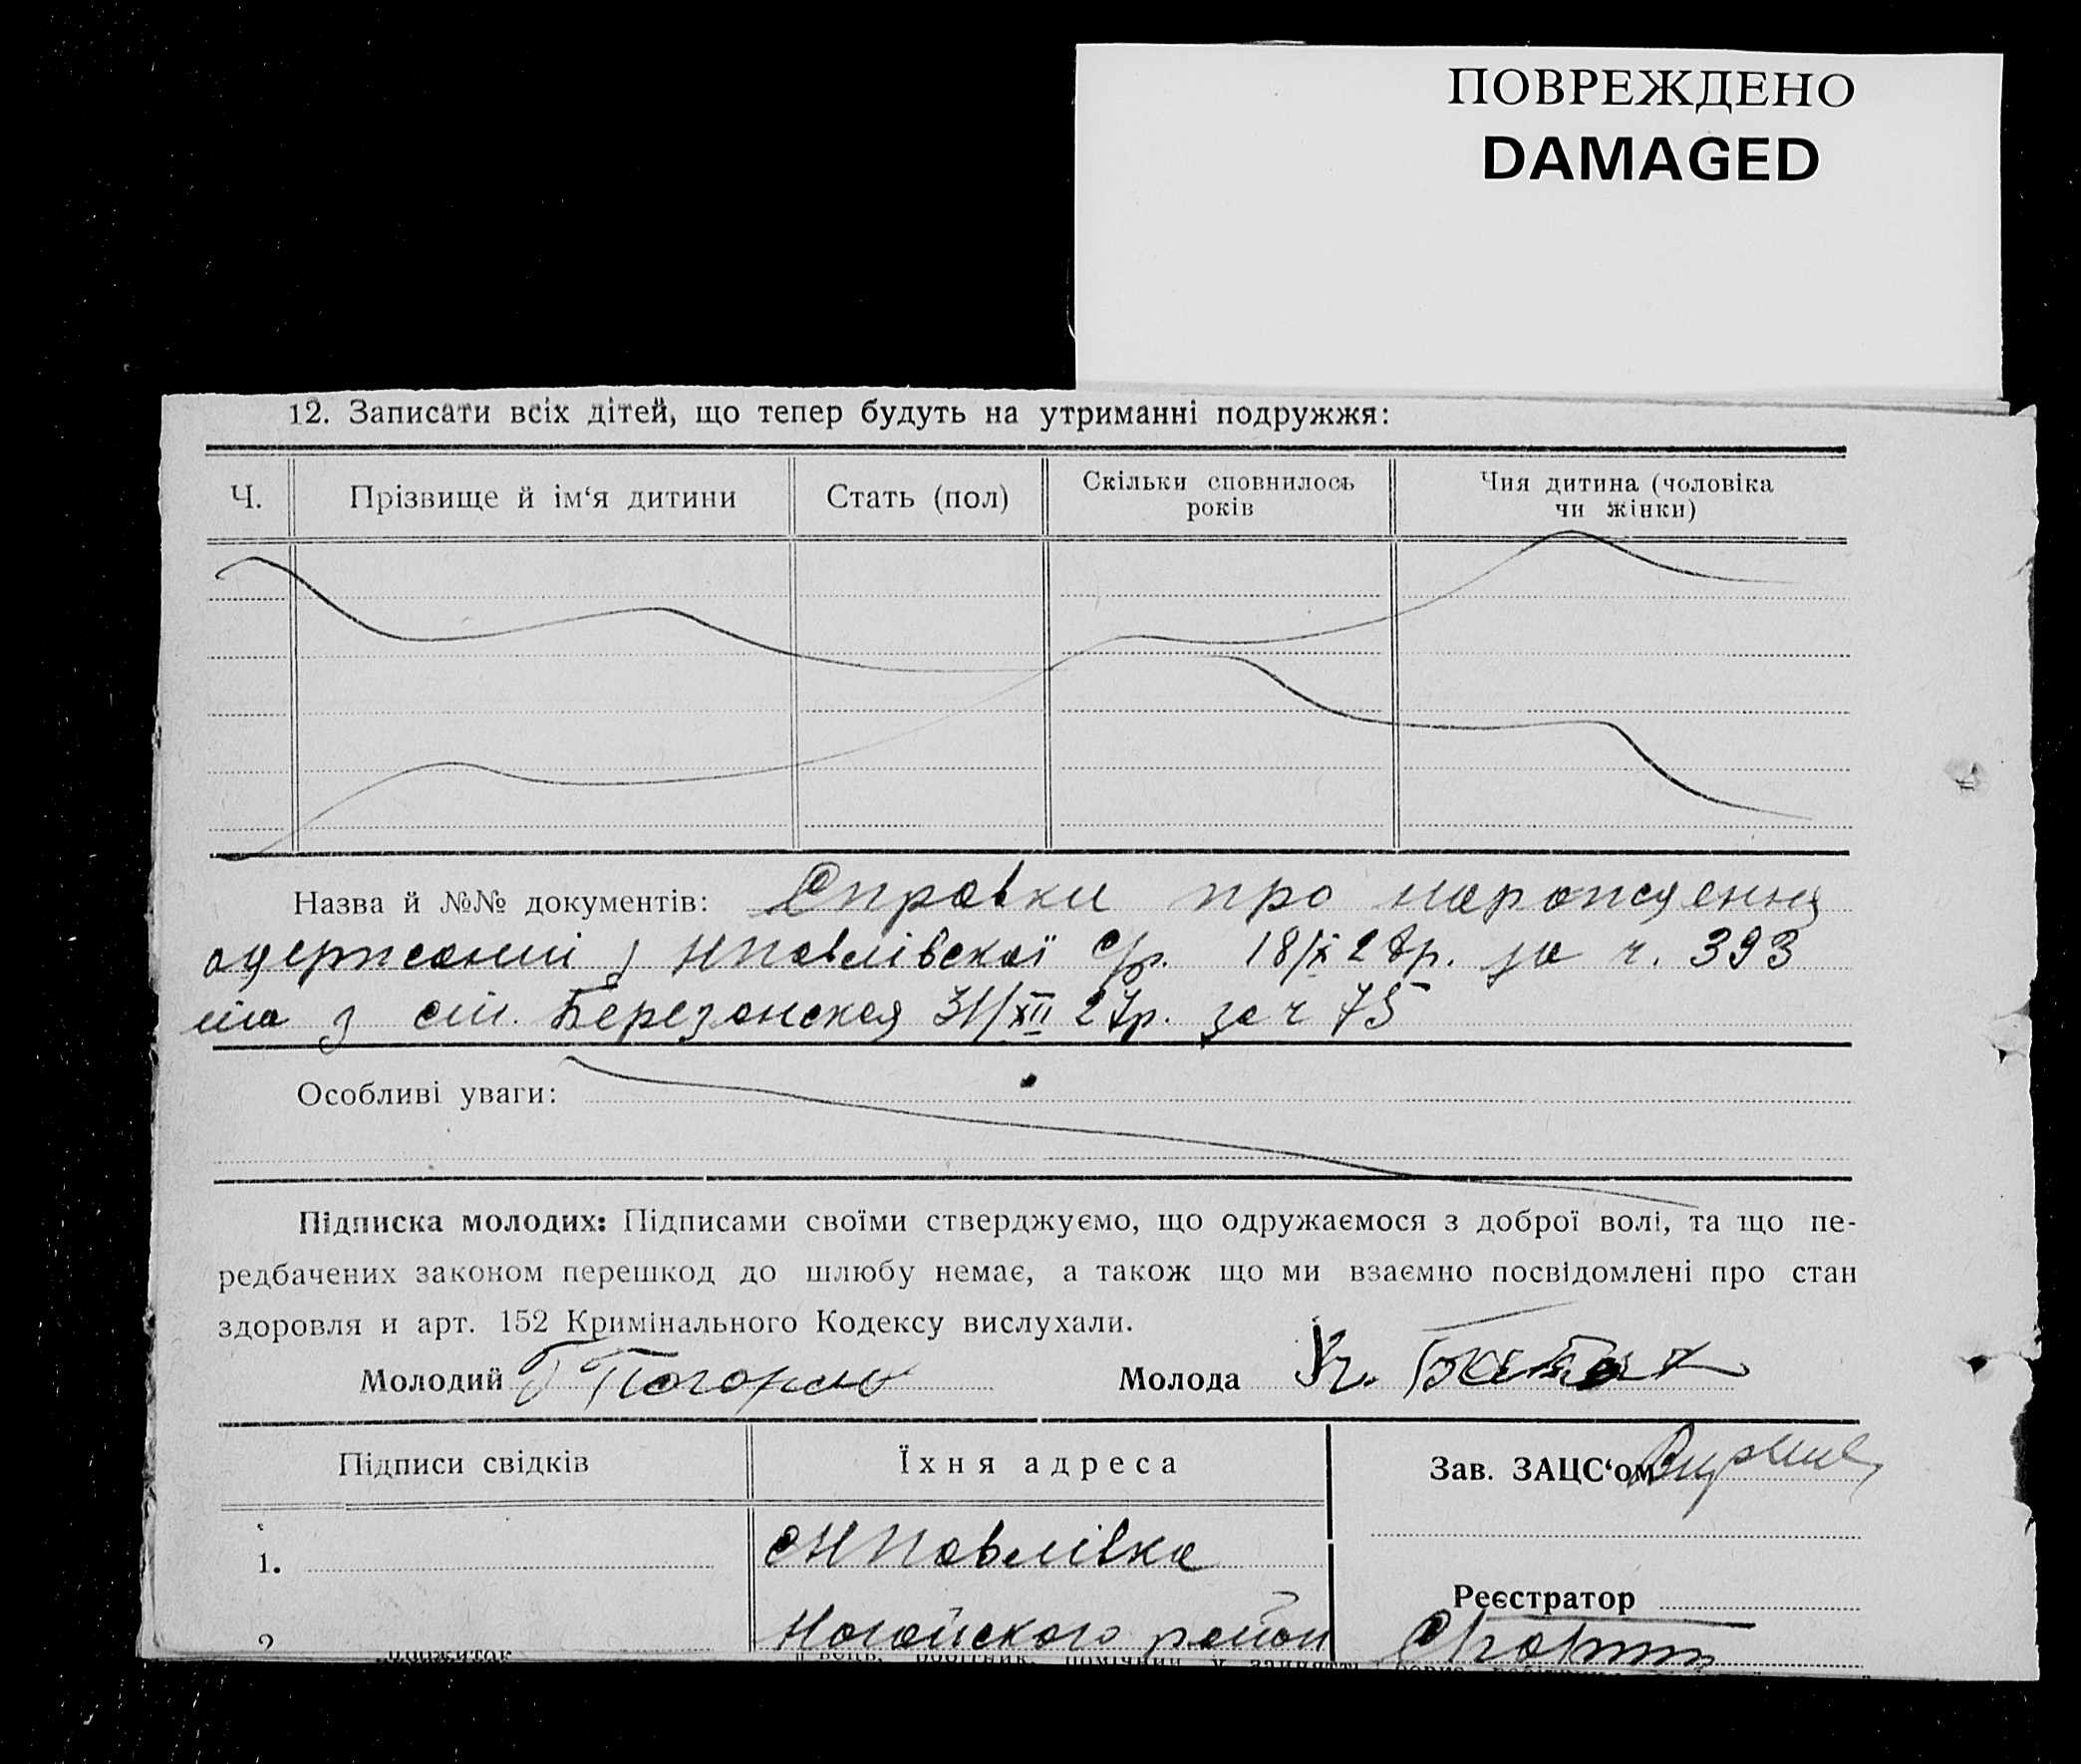 ПОВРЕЖДЕНО
DAMAGED
12. Записати всіх дітей, що тепер будуть на утриманні подружжя:
Ч. Прізвище й ім‘я дитини Стать (пол) Скільки сповнилось років Чия дитина (чоловіка чи жінки)
Назва й №№ документів: Справки про народження
одержанні з НПавлівскої с/р. 18/ІХ 28р. за ч. 393
та з ст. Березанская 31/XII 27р. за ч 75
Особливі уваги:
Підписка молодих: Підписами своїми стверджуємо, що одружаємося з доброї волі, та що пе-
редбачених законом перешкод до шлюбу немає, а також що ми взаємно посвідомлені про стан
здоровля и арт. 152 Кримінального Кодексу вислухали.
Молодий Молода
Підписи свідків Їхня адреса Зав. ЗАЦС‘ом
1. с НПавлівка
Реєстратор
2 Ногайского район